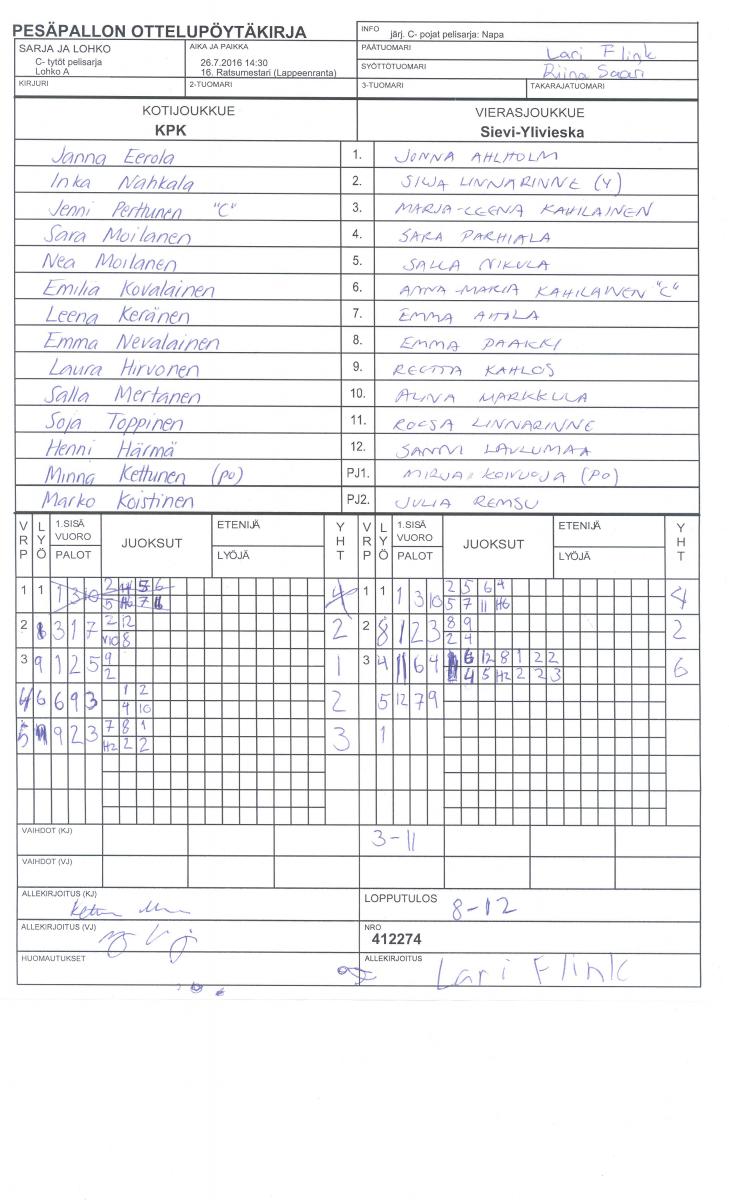 PESÄPALLON OTTELUPÖYTÄKIRJA
INFO järj. C- pojat pelisarja: Napa
SARJA JA LOHKO
C- tytöt pelisarja
Lohko A
AIKA JA PAIKKA
26.7.2016 14:30
16. Ratsumestari (Lappeenranta)
PÄÄTUOMARI Lari Flink
SYÖTTÖTUOMARI Riina Saari
KIRJURI 2-TUOMARI 3-TUOMARI TAKARAJATUOMARI
KOTIJOUKKUE VIERASJOUKKUE
KPK Sievi-Ylivieska
Janna Eerola 1. JONNA AHLHOLM
Inka Nahkala 2. SILJA LINNARINNE (Y)
Jenni Perttunen "C" 3. MARJA-LEENA KAHILAINEN
Sara Moilanen 4. SARA PARHIALA
Nea Moilanen 5. SALLA NIKULA
Emilia Kovalainen 6. ANNA-MARIA KAHILAINEN "C"
Leena Keränen 7. EMMA AITOLA
Emma Nevalainen 8. EMMA PAAKKI
Laura Hirvonen 9. REETTA KAHLOS
Salla Mertanen 10. ALINA MARKKULA
Soja Toppinen 11. ROOSA LINNARINNE
Henni Härmä 12. SANNI LAULUMAA
Minna Kettunen (PO) PJ1. MIRJA KOIVUOJA (PO)
Marko Koistinen PJ2. JULIA REMSU
VRP LYÖ 1.SISÄ VUORO PALOT JUOKSUT ETENIJÄ LYÖJÄ YHT VRP LYÖ 1.SISÄ VUORO PALOT JUOKSUT ETENIJÄ LYÖJÄ YHT
1 1 1 3 10 4 1 1 1 3 10 2 5 6 4 4
5 7 11 H6
2 8 3 1 7 2 12 2 2 8 1 2 3 8 9 2
V10 8 2 4
3 9 1 2 5 9 1 3 4 11 6 4 6 12 8 1 2 2 6
2 4 5 H2 2 2 3
4 6 6 9 3 1 2 2 5 12 7 9
4 10
5 9 2 3 7 8 1 3 1
H2 2 2
VAIHDOT (KJ) 3-11
VAIHDOT (VJ)
ALLEKIRJOITUS (KJ) LOPPUTULOS 8-12
ALLEKIRJOITUS (VJ) NRO
412274
HUOMAUTUKSET ALLEKIRJOITUS Lari Flink